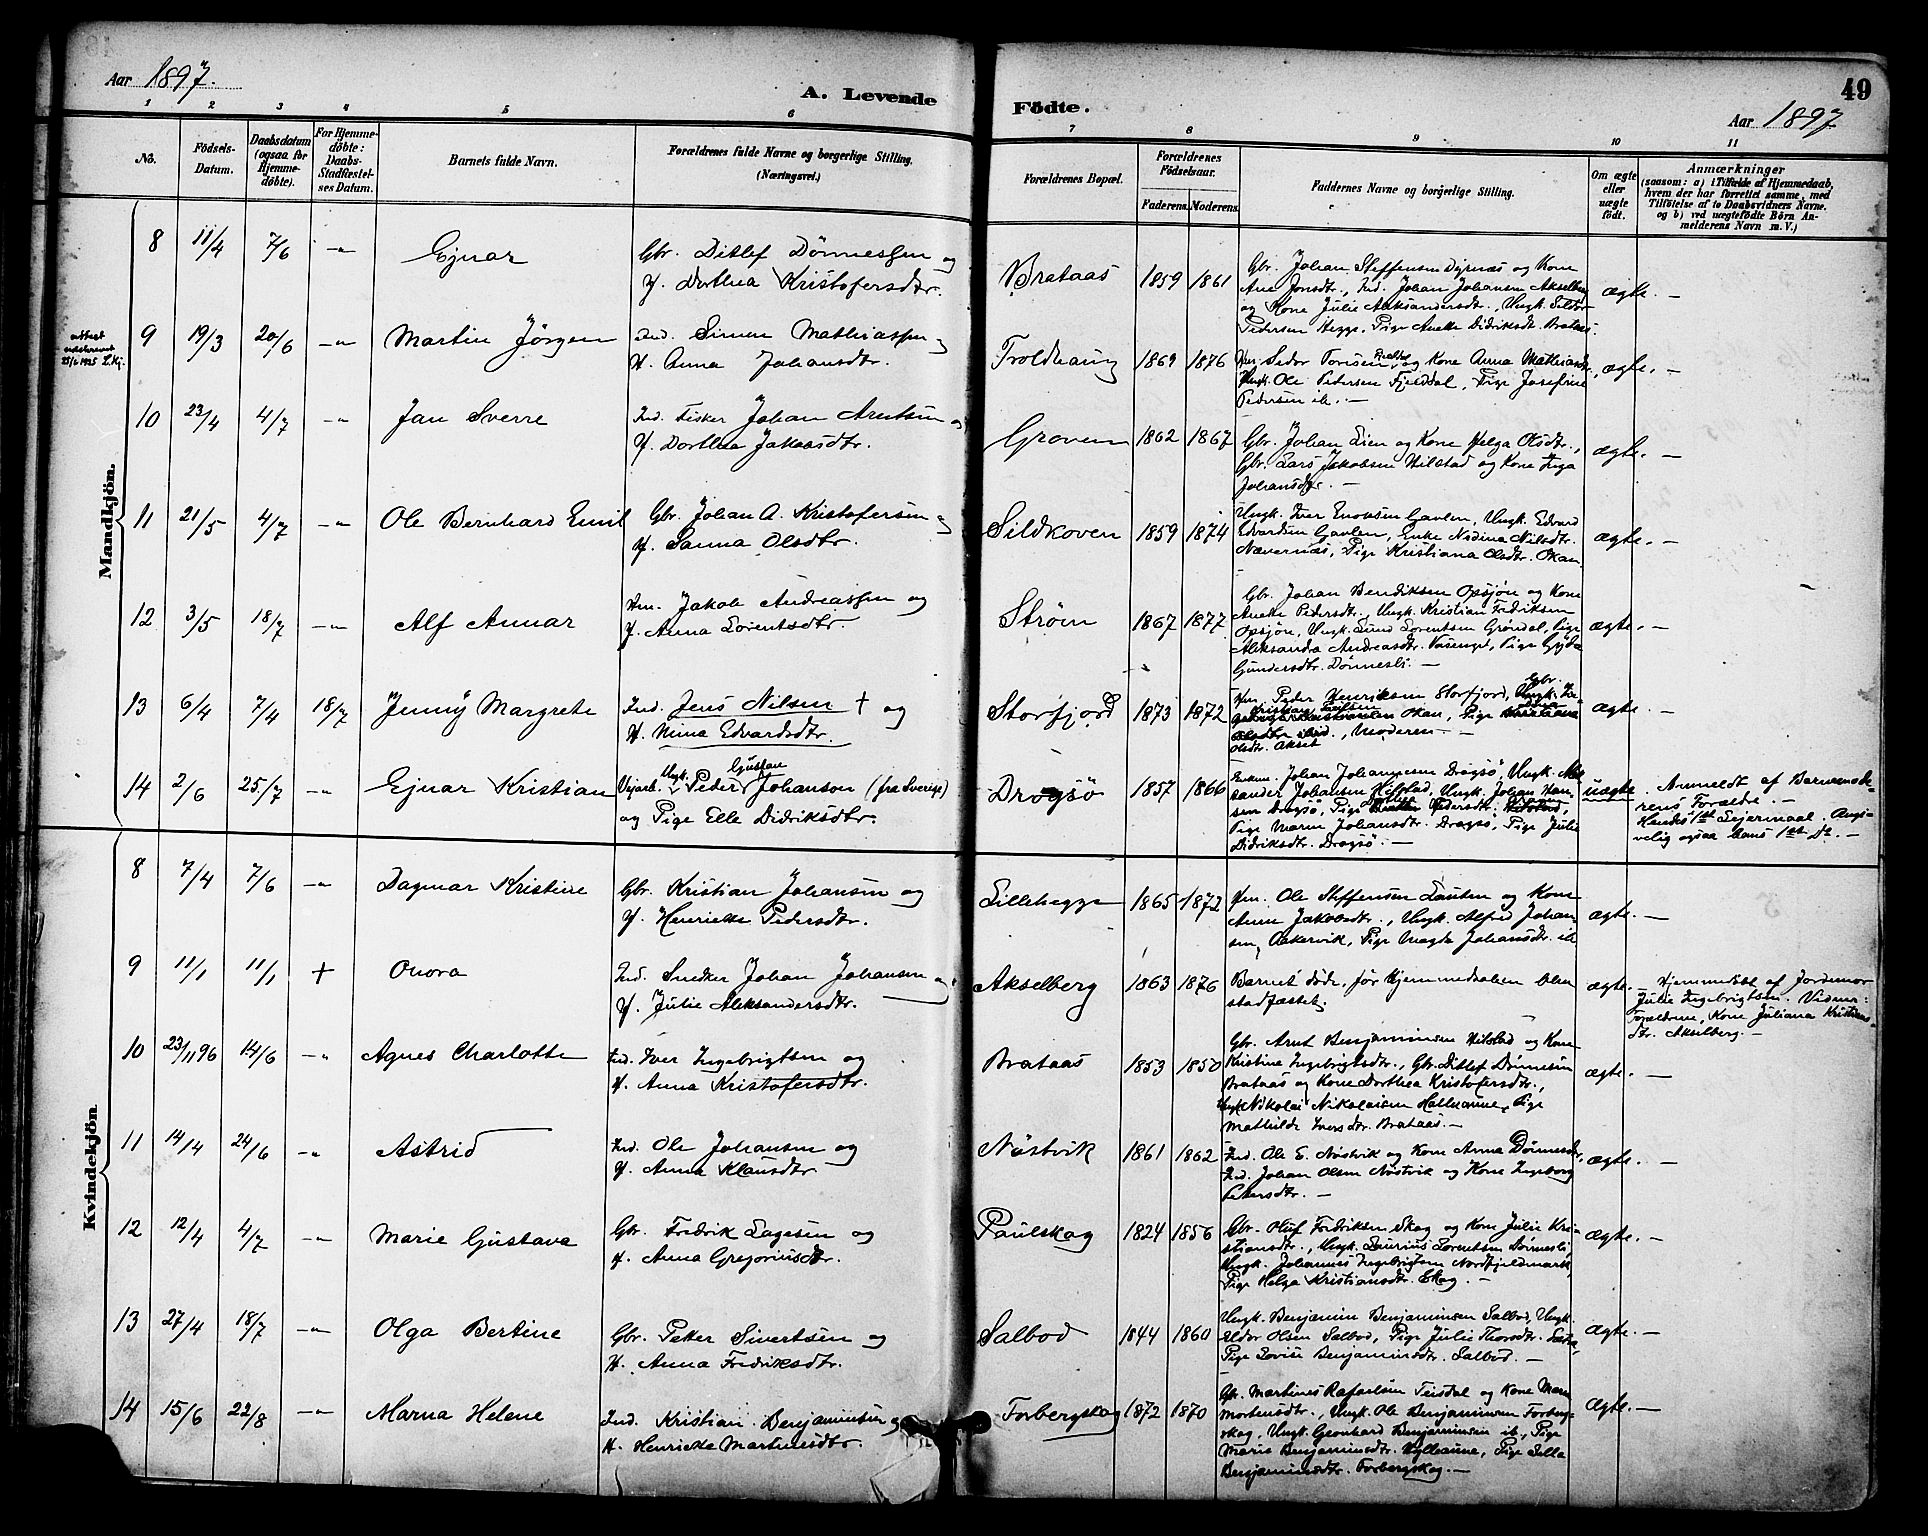 Aar 1897.
A. Levende
Fødte.
49
Aar 1897
1 2 3 4 5 6 7 8 9 10 11
No.
Fødsels-
Datum.
Daabsdatum
(ogsaa for
Hjemme-
døbte).
For Hjemme-
døbte:
Daabs-
Stadfæstel-
ses Datum.
Barnets fulde Navn.
Forældrenes fulde Navne og borgerlige Stilling.
(Næringsvei.)
Forældrenes Bopæl.
Forældrenes
Fødselsaar.
Faderens. Moderens.
Faddernes Navne og borgerlige Stilling.
Om ægte
eller
uægte
født.
Anmærkninger
(saasom: a) i Tilfælde af Hjemmedaab,
hvem der har forrettet samme, med
Tilføielse af to Daabsvidners Navne.
og b) ved uægtefødte Børn An-
melderens Navn m. V.)
Mandkjön.
8 11/4 7/6 -"- Ejnar
Gbr. Ditlef Dönnessen og
H. Dorthea Kristofersdtr.
Brataas 1859 1861
Gbr. Johan Steffensen Dyrnæs og Kone
Ane Jonsdtr., Ind. Johan Johansen Akselberg
og Kone Julie Aleksandersdtr., Ungk. Seldor
Pedersen Hegge, Pige Anette Didriksdt. Brataas.
ægte. —
attest
utskrevet
9 19/3 20/6 -"- Martin Jörgen
Ind. Simen Mathiassen og
H. Anna Johansdtr.
Troldhaug 1869 1876
Kone Anna Mathiasdtr.,
Ungk. Ole Pedersen Fjelddal, Pige Josefine
Pedersen ib. —
ægte. —
10 23/4 4/7 -"- Jan Sverre
Ind. Fisker Johan Arntsen og
H. Dorthea Jakobsdtr.
Groven 1862 1867
Gbr. Johan Lien og Kone Helga Olsdtr.,
Gbr. Lars Jakobsen Hilstad og Kone Inga
Johansdtr. —
ægte. —
11 21/5 4/7 -"- Ole Bernhard Emil
Gbr. Johan A. Kristofersen og
H. Sanna Olsdtr.
Sildkoven 1859 1874
Ungk. Iver Enoksen Gavlen, Ungk. Edvard
Edvardsen Gavlen, Enke Nidina Nilsdtr.
Nævernæs, Pige Kristiana Olsdtr. Okan.
ægte. —
12 3/5 18/7 -"- Alf Annar
Hm. Jakob Andreassen og
H. Anna Lorentsdtr
Ström 1867 1877
Gbr. Johan Bendiksen Opsjön og Kone
Anette Pedersdtr., Ungk. Kristian Fredriksen
Opsjön, Ungk. Lund Lorentsen Gröndal, Pige
Aleksandra Andreasdtr. Vasenget, Pige Gyda
Gundersdtr. Dönnesli. —
ægte. —
13 6/4 7/4 18/7 Jenny Margrete
Ind. Jens Nilsen + og
H. Nina Edvardsdtr.
Storfjord 1873 1872
Hm. Peder Henriksen Storfjord, Gbr.
Okan, Pige
Olsdtr. Akset, Moderen. —
ægte. —
14 2/6 25/7 -"- Ejnar Kristian
Ungk. Gustav
Vejarb. Peder Johanson (fra Sverige)
og Pige Elle Didriksdtr.
Drogsö 1857 1866
Enkem. Johan Johannesen Drogsö, Ungk. Alek-
sander Johansen Hilstad, Ungk. Johan Han-
sen Drogsö, Pige Pedersdtr.
Pige Maren Johansdtr. Drogsö, Pige Julie
Didriksdtr. Drogsö. —
uægte
Anmeldt af Barnemode-
rens Forældre. —
Hendes 1st Lejermaal. Angi-
velig ogsaa Hans 1st Do. —
Kvindekjön.
8 7/4 7/6 -"- Dagmar Kristine
Gbr. Kristian Johansen og
H. Henriette Pedersdtr.
Lillehegge 1865 1872
Hm. Ole Steffensen Lauten og Kone
Anne Jakobsdtr., Ungk. Alfred Johan-
sen, Aakervik, Pige Magda Johansdtr. ib
ægte. —
9 11/1 11/1 + Onora
Ind. Snedker Johan Johansen og
H. Julie Aleksandersdtr.
Akselberg 1863 1876
Barnet döde, før Hjemmedaaben blev
stadfæstet.
ægte. —
Hjemmedöbt af Jordemor
Julie Ingebrigtsen. Vidner:
Forældrene, Kone Juliana Kristians-
dtr. Akselberg. —
10 23/11 96 14/6 -"- Agnes Charlotte
Ind. Iver Ingebrigtsen og
H. Anna Kristofersdtr.
Brataas 1853 1850
Gbr. Arnt Benjaminsen Hilstad og Kone
Kristine Ingebrigtsdtr., Gbr. Ditlef Dönnesen
Brataas og Kone Dorthea Kristofersdtr.,
Ungk. Nikolai Nikolaisen Hatleanne, Pige
Mathilde Iversdtr. Brataas. —
ægte. —
11 14/4 24/6 -"- Astrid
Ind. Ole Johansen og
H. Anna Klausdtr
Nöstvik 1861 1862
Ind. Ole E. Nöstvik og Kone Anna Dönnesdtr.,
Ind. Johan Olsen Nöstvik og Kone Ingeborg
Petersdtr. —
ægte. —
12 12/4 4/7 -"- Marie Gustava
Gbr. Fredrik Lagesen og
H. Anna Gregoriusdtr.
Paulskog 1824 1856
Gbr. Oluf Fredriksen Skog og Kone Julie Kri-
stiansdtr., Ungk. Laurius Lorentsen Dönnesli,
Ungk. Johannes Ingebrigtsen Nordfjeldmark,
Pige Helga Kristiansdtr. Skog. —
ægte. —
13 27/4 18/7 -"- Olga Bertine
Gbr. Peter Sivertsen og
H. Anna Fredriksdtr.
Salbod 1844 1860
Ungk. Benjamin Benjaminsen Salbod, Ungk.
Eldor Olsen Salbod, Pige Julie Thorsdtr.
Pige Lovise Benjaminsdtr. Salbod. —
ægte. —
14 15/6 22/8 -"- Marna Helene
Ind. Kristian Benjaminsen og
H. Henriette Martinusdtr.
Forbergskog 1872 1870
Gbr. Martines Rafaelsen Teisdal og Kone Maren
Mortensdtr., Ungk. Ole Benjaminsen Forberg-
skog, Ungk. Geonhard Benjaminsen ib, Pige
Marie Benjaminsdtr. Hylleanne, Pige Sella
Benjaminsdtr. Forbergskog. —
ægte. —